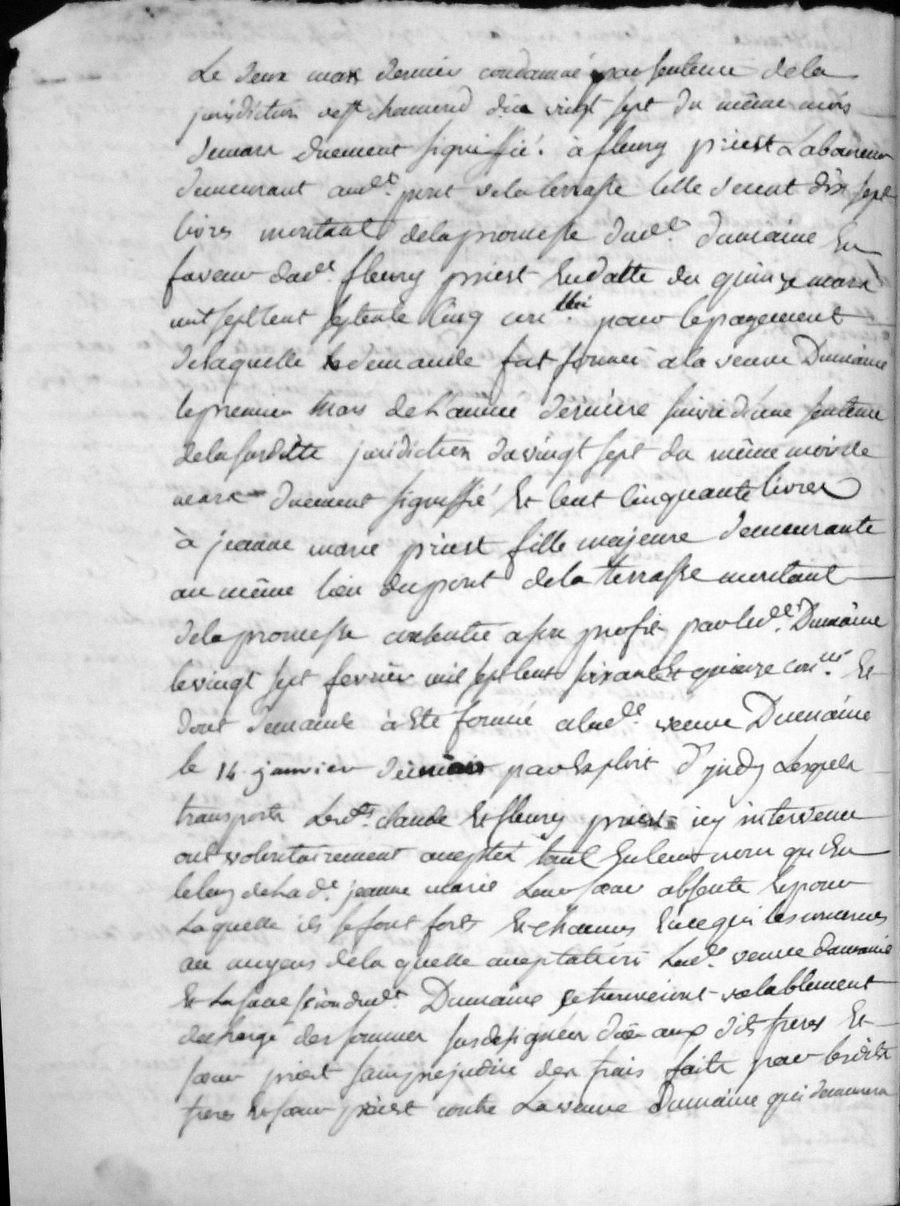 Le deux mars dernier condamné par sentence de la
jurisdiction de St chamond du vingt sept du même mois
de mars duement signiffié. à fleury priest Laboureur
demeurant aud.t pont de la terrasse celle de cent dix sept
livres montant de la promesse dud.t dumaine En
faveur dud.t fleury priest En datte du quinze mars
mil sept cent septente Cinq con.lée pour le payement
de laquelle demande fut formée a la veuve Dumaine
le premier Mars de L'année dernière suivie d'une sentence
de la susditte jurisdiction du vingt sept du même mois de
mars duement signiffié Et Cent Cinquante livres
à jeanne marie priest fille majeure demeurante
au même lieu du pont de la terrasse montant
de la promesse consentie a son profit par led.t Dumaine
le vingt sept fevrier mil sept cent soixante Et quinze con.lée Et
dont demande à Eté formée a lad.e veuve Dumaine
le 14 janvier dernier par Exploit d' Lesquels
transports Lesd.ts claude Et fleury priest icy intervenu
ont volontairement accepter tant En leurs nom qu'En
celuy de La d.e jeanne marie Leur sœur absente Et pour
Laquelle ils se font forts Et chacuns En ce qui les concernes
au moyens de la quelle acceptation Lad.e veuve dumaine
Et La succession dud.t Dumaine se trouveront valablement
decharge des sommes susdesignées düe aux dits freres Et
sœur priest sans prejudice des frais faits par lesdits
freres Et sœur priest contre La veuve Dumaine qui demeurera